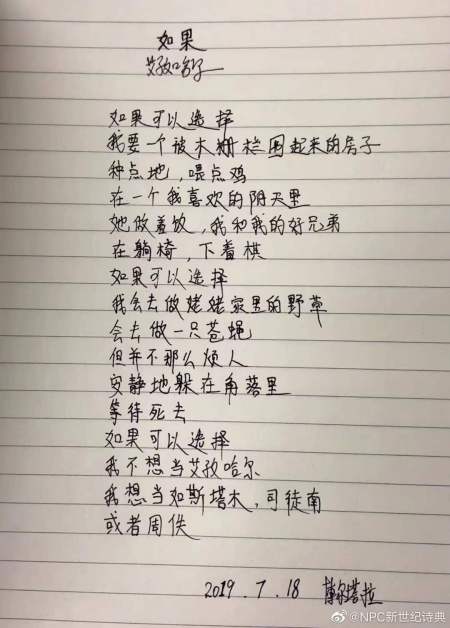 如果
艾孜哈尔
如果可以选择
我要一个被木栅栏围起来的房子
种点地，喂点鸡
在一个我喜欢的阴天里
她做着饭，我和我的好兄弟
在躺椅，下着棋
如果可以选择
我会去做姥姥家里的野草
会去做一只苍蝇
但并不那么烦人
安静地躲在角落里
等待死去
如果可以选择
我不想当艾孜哈尔
我想当如斯塔木，司徒南
或者周佚
2019.7.18 博尔塔拉
@NPC新世纪诗典